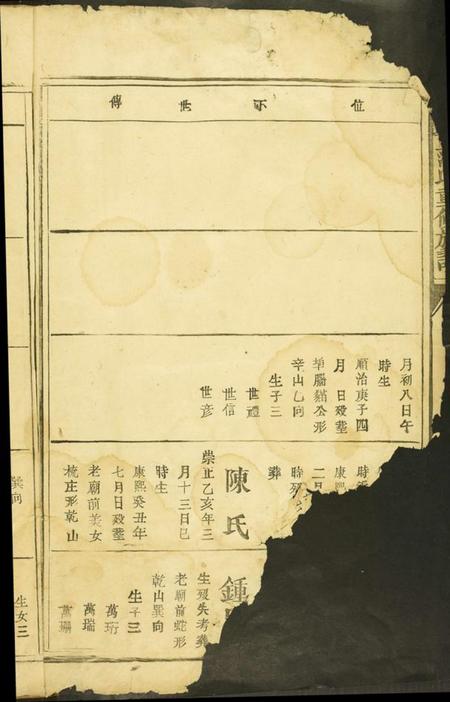 位下世傳
重修族譜
月初八日午
時生
順治庚子四
月 日歿塟
猫公形
辛山乙向
生子三
世禮
世信
世彦
康熙
二
時歿
葬
陳氏
崇正乙亥年三
月十三日巳
時生
康熙癸丑年
七月日歿塟
老廟前美女
梳庄形乾山
巽向
鍾
生歿失考葬
老廟前蛇形
乾山巽向
生子三
萬珩
萬瑞
萬珊
生女三